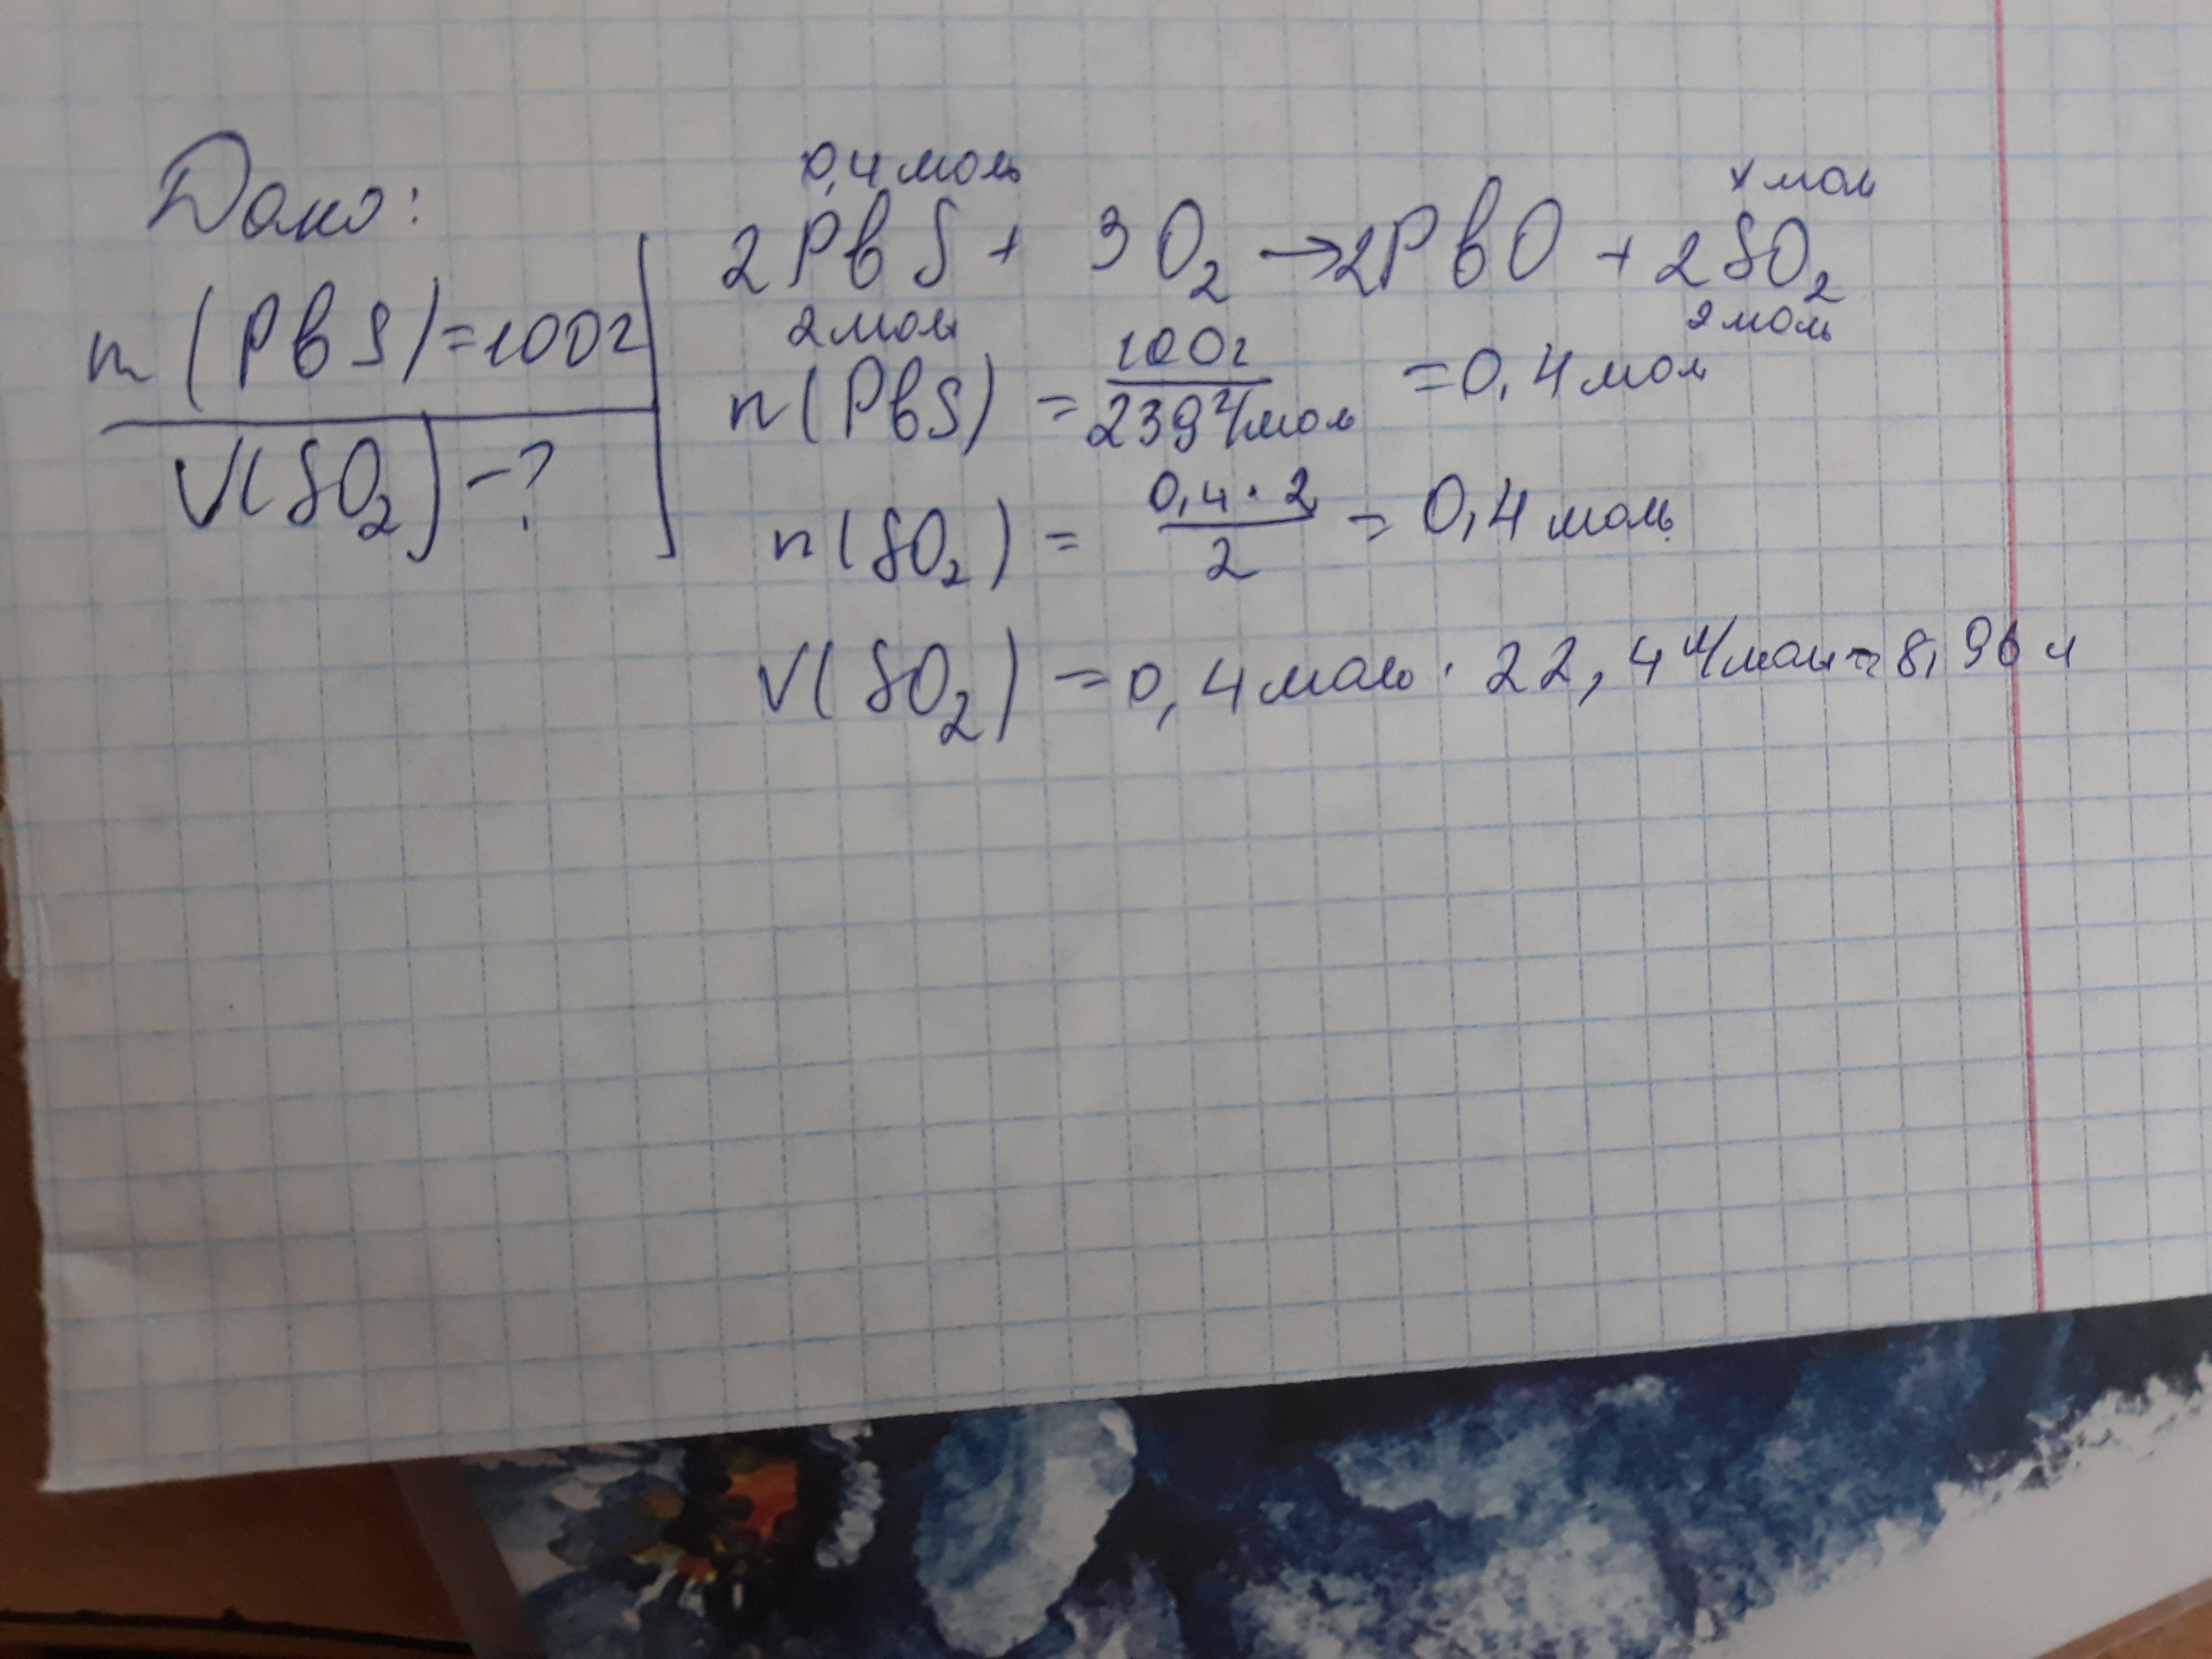 Дано:
m(PbS)=100г
V(SO₂)-?
0,4 моль x моль
2PbS + 3O₂ → 2PbO + 2SO₂
2 моль 2 моль
n(PbS) = 100г / 239 г/моль = 0,4 моль
n(SO₂) = 0,4·2 / 2 = 0,4 моль
V(SO₂) = 0,4 моль · 22,4 л/моль = 8,96 л